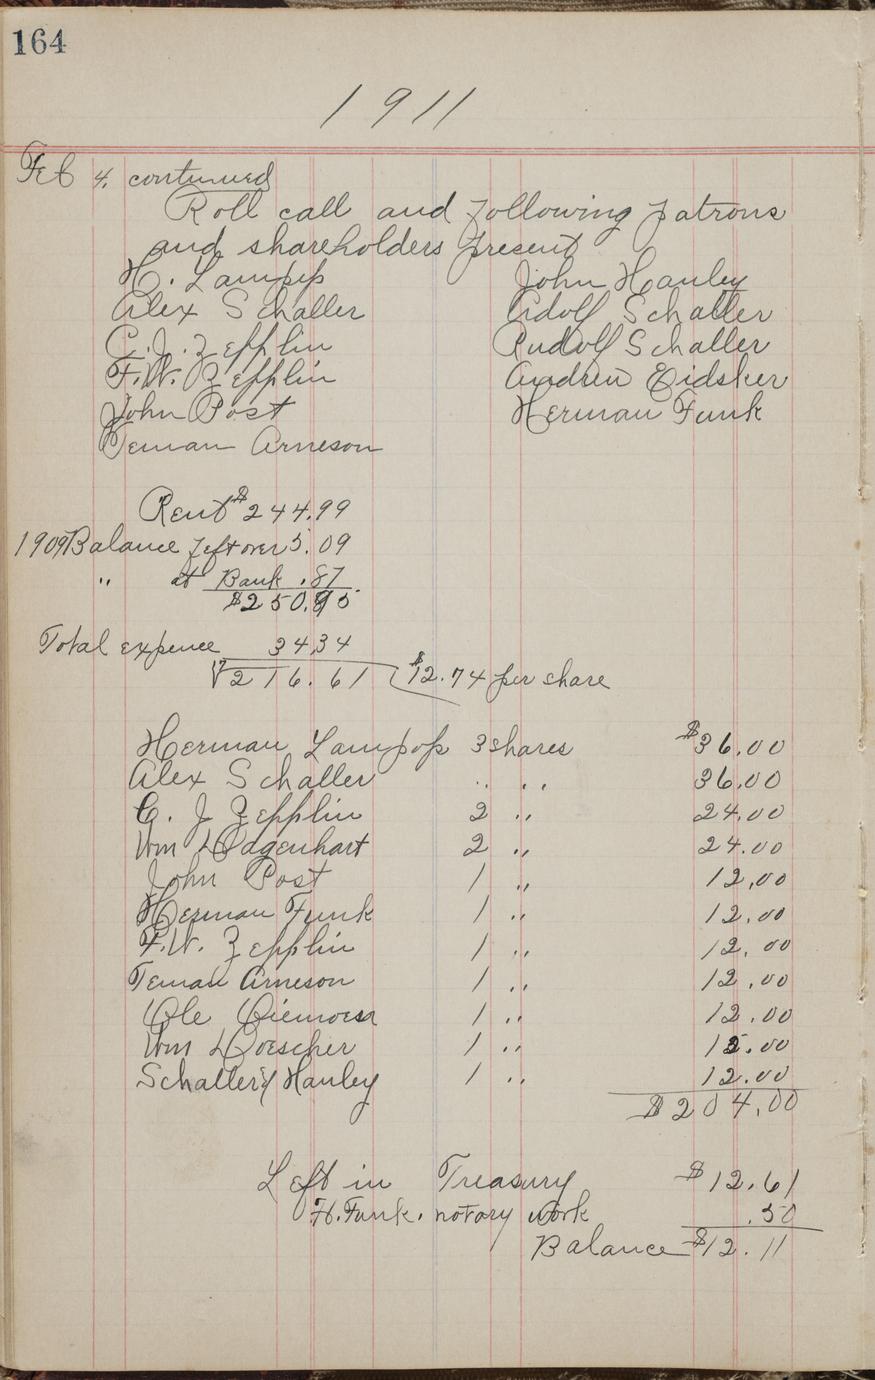 164
1911
Feb 4. continued
Roll call and following patrons
and shareholders present
H. Lampp John Hanley
Alex Schaller Adolf Schaller
C. J. Zepplin Rudolf Schaller
F. W. Zepplin Andrew Eidsker
John Post Herman Funk
Teman Arneson
Rent $244.99
1909 Balance left over 5.09
" at Bank .87
$250.95
Total expence 34.34
17 216.61 $12.74 per share
Herman Lampp 3 shares $36.00
Alex Schaller " " 36.00
C. J. Zepplin 2 " 24.00
Wm 24.00
John Post 1 " 12.00
Herman Funk 1 " 12.00
F. W. Zepplin 1 " 12.00
Teman Arneson 1 " 12.00
Ole 1 " 12.00
Wm 1 " 12.00
Schaller & Hanley 1 " 12.00
$204.00
Left in Treasury $12.61
H. Funk. notary work .50
Balance $12.11